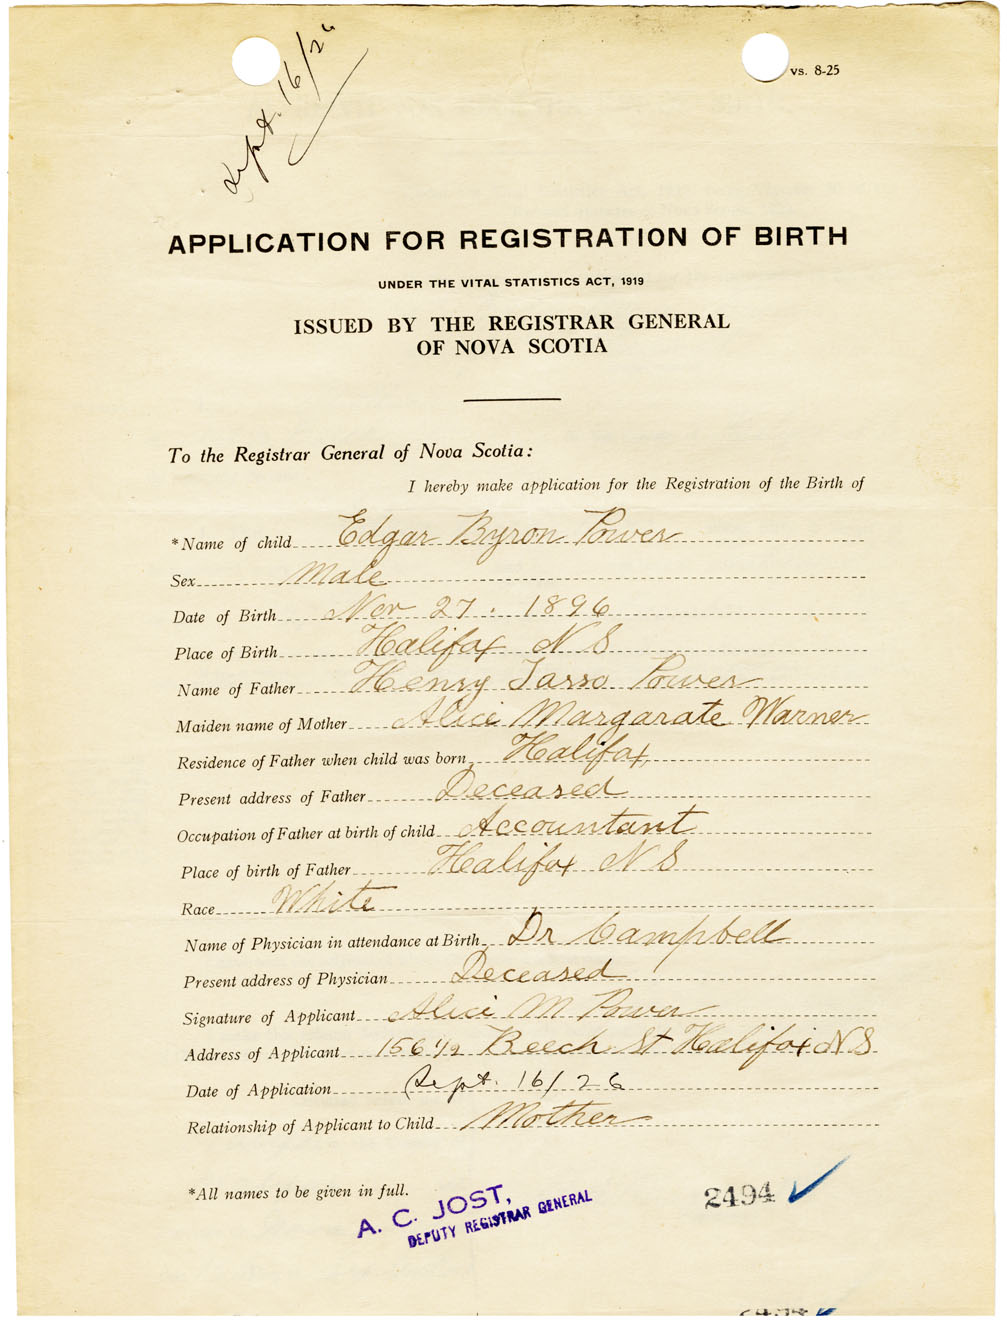 Sept. 16/26
vs. 8-25
APPLICATION FOR REGISTRATION OF BIRTH
UNDER THE VITAL STATISTICS ACT, 1919
ISSUED BY THE REGISTRAR GENERAL
OF NOVA SCOTIA
To the Registrar General of Nova Scotia:
I hereby make application for the Registration of the Birth of
*Name of child Edgar Byron Power
Sex Male
Date of Birth Nov 27. 1896
Place of Birth Halifax N S
Name of Father Henry Tasso Power
Maiden name of Mother Alice Margarate Warner
Residence of Father when child was born Halifax
Present address of Father Deceased
Occupation of Father at birth of child Accountant
Place of birth of Father Halifax N S
Race White
Name of Physician in attendance at Birth Dr Campbell
Present address of Physician Deceased
Signature of Applicant Alice M Power
Address of Applicant 156 1/2 Beech St Halifax N S
Date of Application Sept. 16/26
Relationship of Applicant to Child Mother
*All names to be given in full.
A. C. JOST,
DEPUTY REGISTRAR GENERAL
2494